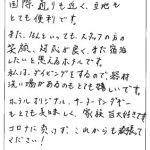 国際通りも近く、立地も
とても便利です。
また、なんといっても、スタッフの方の
笑顔、対応が良く、また宿泊
したいと思えるホテルです。
私は、ダイビングもするので、器材
洗い場があるのもとても嬉しいです。
ホテルオリジナル、サーターアンダギー
もとても美味しく、家族皆大好きです
コロナに負けず、これからも頑張て
ください!